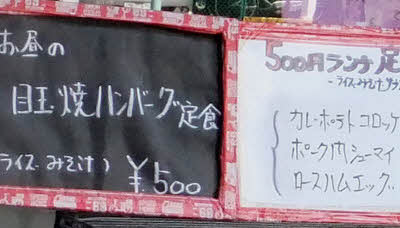 お昼の
目玉焼ハンバーグ定食
ライス みそ汁)
¥500
500円ランチ定
-ライス.みそ汁.サラ
カレーポテトコロッケ
ポーク肉シューマイ
ロースハムエッグ